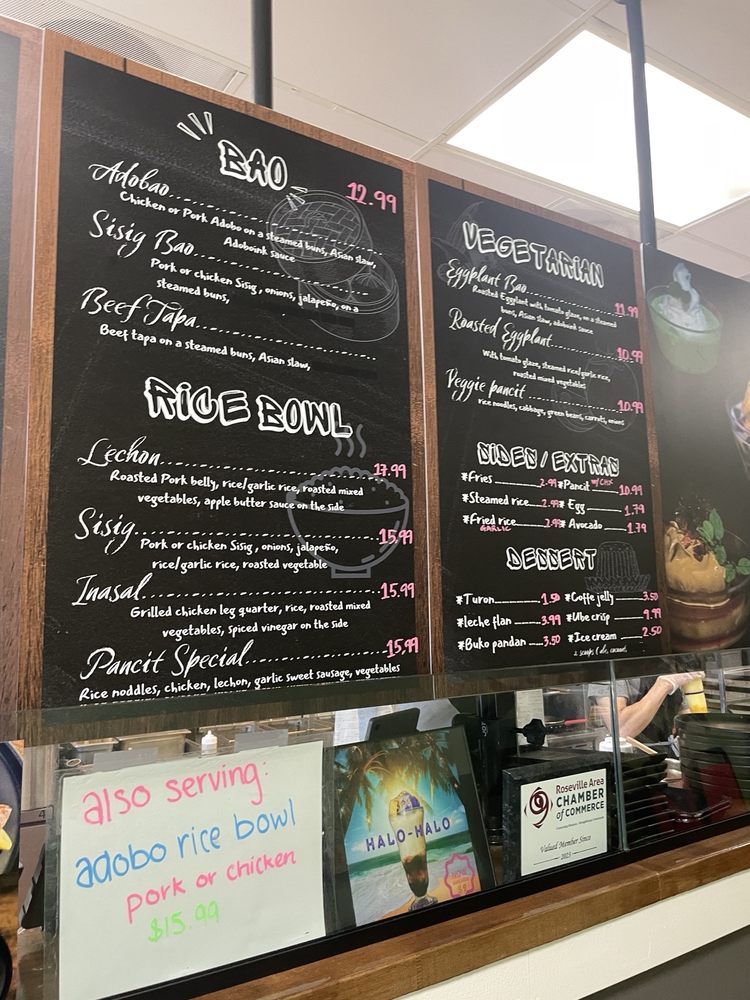 BAO
12.99
Adobao
Chicken or Pork Adobo on a steamed buns, Asian slaw,
Adoboink sauce
Sisig Bao
Pork or chicken Sisig , onions, jalapeño, on a
steamed buns,
Beef Tapa
Beef tapa on a steamed buns, Asian slaw,
RICE BOWL
Lechon 17.99
Roasted Pork belly, rice/garlic rice, roasted mixed
vegetables, apple butter sauce on the side
Sisig 15.99
Pork or chicken Sisig , onions, jalapeño,
rice/garlic rice, roasted vegetable
Inasal 15.99
Grilled chicken leg quarter, rice, roasted mixed
vegetables, spiced vinegar on the side
Pancit Special 15.99
Rice noddles, chicken, lechon, garlic sweet sausage, vegetables
VEGETARIAN
Eggplant Bao 11.99
Roasted Eggplant with tomato glaze, on a steamed
buns, Asian slaw, adoboink sauce
Roasted Eggplant 10.99
With tomato glaze, steamed rice/garlic rice,
roasted mixed vegetables
Veggie pancit 10.99
rice noodles, cabbage, green beans, carrots, onions
SIDES / EXTRAS
*Fries 2.99 *Pancit w/ CHX 10.99
*Steamed rice 2.99 * Egg 1.79
*Fried rice 2.99 * Avocado 1.79
GARLIC
DESSERT
*Turon 1.50 *Coffe jelly 3.50
*leche flan 3.99 *Ube crisp 9.99
*Buko pandan 3.50 *Ice cream 2.50
2 scoops
also serving:
adobo rice bowl
pork or chicken
$15.99
HALO-HALO
$9
Roseville Area
CHAMBER
of COMMERCE
Valued Member Since
2023